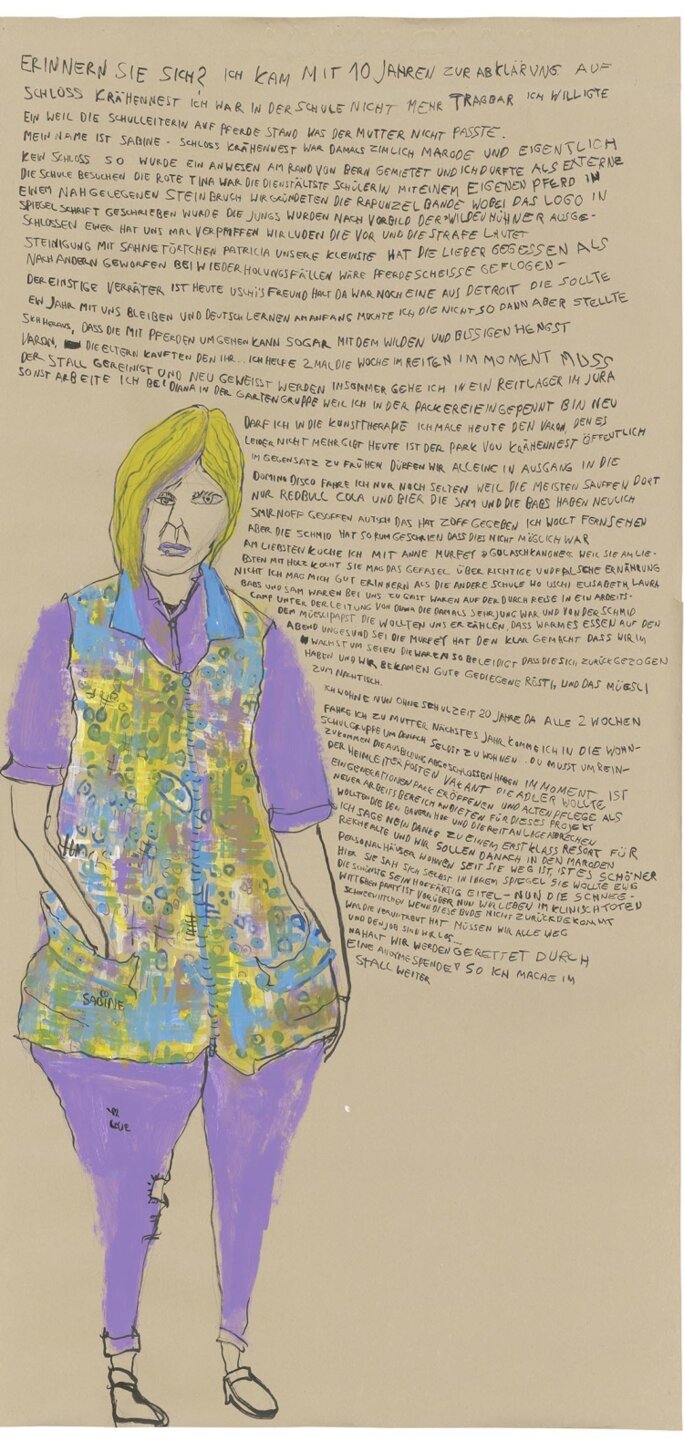 ERINNERN SIE SICH? ICH KAM MIT 10 JAHREN ZUR ABKLÄRUNG AUF
SCHLOSS KRÄHENNEST ICH WAR IN DER SCHULE NICHT MEHR TRAGBAR ICH WILLIGTE
EIN WEIL DIE SCHULLEITERIN AUF PFERDE STAND WAS DER MUTTER NICHT PASSTE.
MEIN NAME IST SABINE - SCHLOSS KRÄHENNEST WAR DAMALS ZIMLICH MARODE UND EIGENTLICH
KEIN SCHLOSS SO WURDE EIN ANWESEN AM RAND VON BERN GEMIETET UND ICH DURFTE ALS EXTERNE
DIE SCHULE BESUCHEN DIE ROTE TINA WAR DIE DIENSTÄLTSTE SCHÜLERIN MIT EINEM EIGENEN PFERD IN
EINEM NAHGELEGENEN STEINBRUCH WIR GRÜNDETEN DIE RAPUNZEL BANDE WOBEI DAS LOGO IN
SPIEGELSCHRIFT GESCHRIEBEN WURDE DIE JUNGS WURDEN NACH VORBILD DER WILDEN HÜHNER AUSGE-
SCHLOSSEN EINER HAT UNS MAL VERPFIFFEN WIR LUDEN DIE VOR UND DIE STRAFE LAUTET
STEINIGUNG MIT SAHNETÖRTCHEN PATRICIA UNSERE KLEINSTE HAT DIE LIEBER GEGESSEN ALS
NACH ANDERN GEWORFEN BEI WIEDERHOLUNGSFÄLLEN WÄRE PFERDESCHEISSE GEFLOGEN -
DER EINSTIGE VERRÄTER IST HEUTE USCHI'S FREUND HALT DA WAR NOCH EINE AUS DETROIT DIE SOLLTE
EIN JAHR MIT UNS BLEIBEN UND DEUTSCH LERNEN AM ANFANG MOCHTE ICH DIE NICHT SO DANN ABER STELLTE
SICH HERAUS, DASS DIE MIT PFERDEN UMGEHEN KANN SOGAR MIT DEM WILDEN UND BISSIGEN HENGST
VARON, DIE ELTERN KAUFTEN DEN IHR... ICH HELFE 2 MAL DIE WOCHE IM REITEN IM MOMENT MUSS
DER STALL GEREINIGT UND NEU GEWEISST WERDEN IM SOMMER GEHE ICH IN EIN REITLAGER IM JURA
SONST ARBEITE ICH BEI DIANA IN DER GARTENGRUPPE WEIL ICH IN DER PACKEREI EINGEPENNT BIN NEU
DARF ICH IN DIE KUNSTTHERAPIE ICH MALE HEUTE DEN VARON, DEN ES
LEIDER NICHT MEHR GIBT HEUTE IST DER PARK VON KRÄHENNEST ÖFFENTLICH
IM GEGENSATZ ZU FRÜHEN DÜRFEN WIR ALLEINE IN AUSGANG IN DIE
DOMINO DISCO FAHRE ICH NUR NOCH SELTEN WEIL DIE MEISTEN SAUFFEN DORT
NUR REDBULL COLA UND BIER DIE SAM UND DIE BABS HABEN NEULICH
SMIRNOFF GESOFFEN AUTSCH DAS HAT ZOFF GEGEBEN ICH WOLLT FERNSEHEN
ABER DIE SCHMID HAT SO RUM GESCHRIEN DASS DIES NICHT MÖGLICH WAR
AM LIEBSTEN KOCHE ICH MIT ANNE MURFEY GOLASCHKANONE WEIL SIE AM LIE-
BSTEN MIT HOLZ KOCHT SIE MAG DAS GEFASEL ÜBER RICHTIGE UND FALSCHE ERNÄHRUNG
NICHT ICH MAG MICH GUT ERINNERN ALS DIE ANDERE SCHULE WO USCHI ELISABETH LAURA
BABS UND SAM WAREN BEI UNS ZU GAST WAREN AUF DER DURCHREISE IN EIN ARBEITS-
CAMP UNTER DER LEITUNG VON DIE DAMALS SEHR JUNG WAR UND VON DER SCHMID
DEM MÜESLIPAPST DIE WOLLTEN UNS ERZÄHLEN, DASS WARMES ESSEN AUF DEN
ABEND UNGESUND SEI DIE MURFEY HAT DEN KLAR GEMACHT DASS WIR IM
WACHSTUM SEIEN DIE WAREN SO BELEIDIGT DASS DIE SICH ZURÜCKGEZOGEN
HABEN UND WIR BEKAMEN GUTE GEDIEGENE RÖSTI, UND DAS MÜESLI
ZUM NACHTISCH.
ICH WOHNE NUN OHNE SCHULZEIT 20 JAHRE DA ALLE 2 WOCHEN
FAHRE ICH ZU MUTTER NÄCHSTES JAHR KOMME ICH IN DIE WOHN-
SCHULGRUPPE UM DANACH SELBST ZU WOHNEN. DU MUSST UM REIN-
ZUKOMMEN DIE AUSBILDUNG ABGESCHLOSSEN HABEN IM MOMENT IST
DER HEIMLEITERPOSTEN VAKANT DIE ADLER WOLLTE
EIN GENERATIONENPARK ERÖFFENEN UND ALTENPFLEGE ALS
NEUER ARBEITSBEREICH ANBIETEN FÜR DIESES PROJEKT
WOLLTEN DIE DEN BAUERNHOF UND DIE REITANLAGE ABBRECHEN
ICH SAGE NEIN DANKE ZU EINEM ERSTKLASS RESORT FÜR
REICHE ALTE UND WIR SOLLEN DANACH IN DEN MARODEN
PERSONALHÄUSER WOHNEN SEIT SIE WEG IST, IST ES SCHÖNER
HIER SIE SAH SICH SELBST IN IHREM SPIEGEL SIE WOLLTE EWIG
DIE SCHÖNSTE SEIN HOFFÄRTIG EITEL - NUN DIE SCHNEE-
WITTCHEN PARTY IST VORÜBER NUN WIR LEBEN IM KLINISCH TOTEN
SCHNEEWITTCHEN WENN DIESE BUDE NICHT ZURÜCKBEKOMMT
WAS DIE VERUNTREUT HAT MÜSSEN WIR ALLE WEG
UND DEN JOB SIND WIR LOS...
NAHALT WIR WERDEN GERETTET DURCH
EINE ANONYME SPENDE! SO ICH MACHE IM
STALL WEITER
SABINE